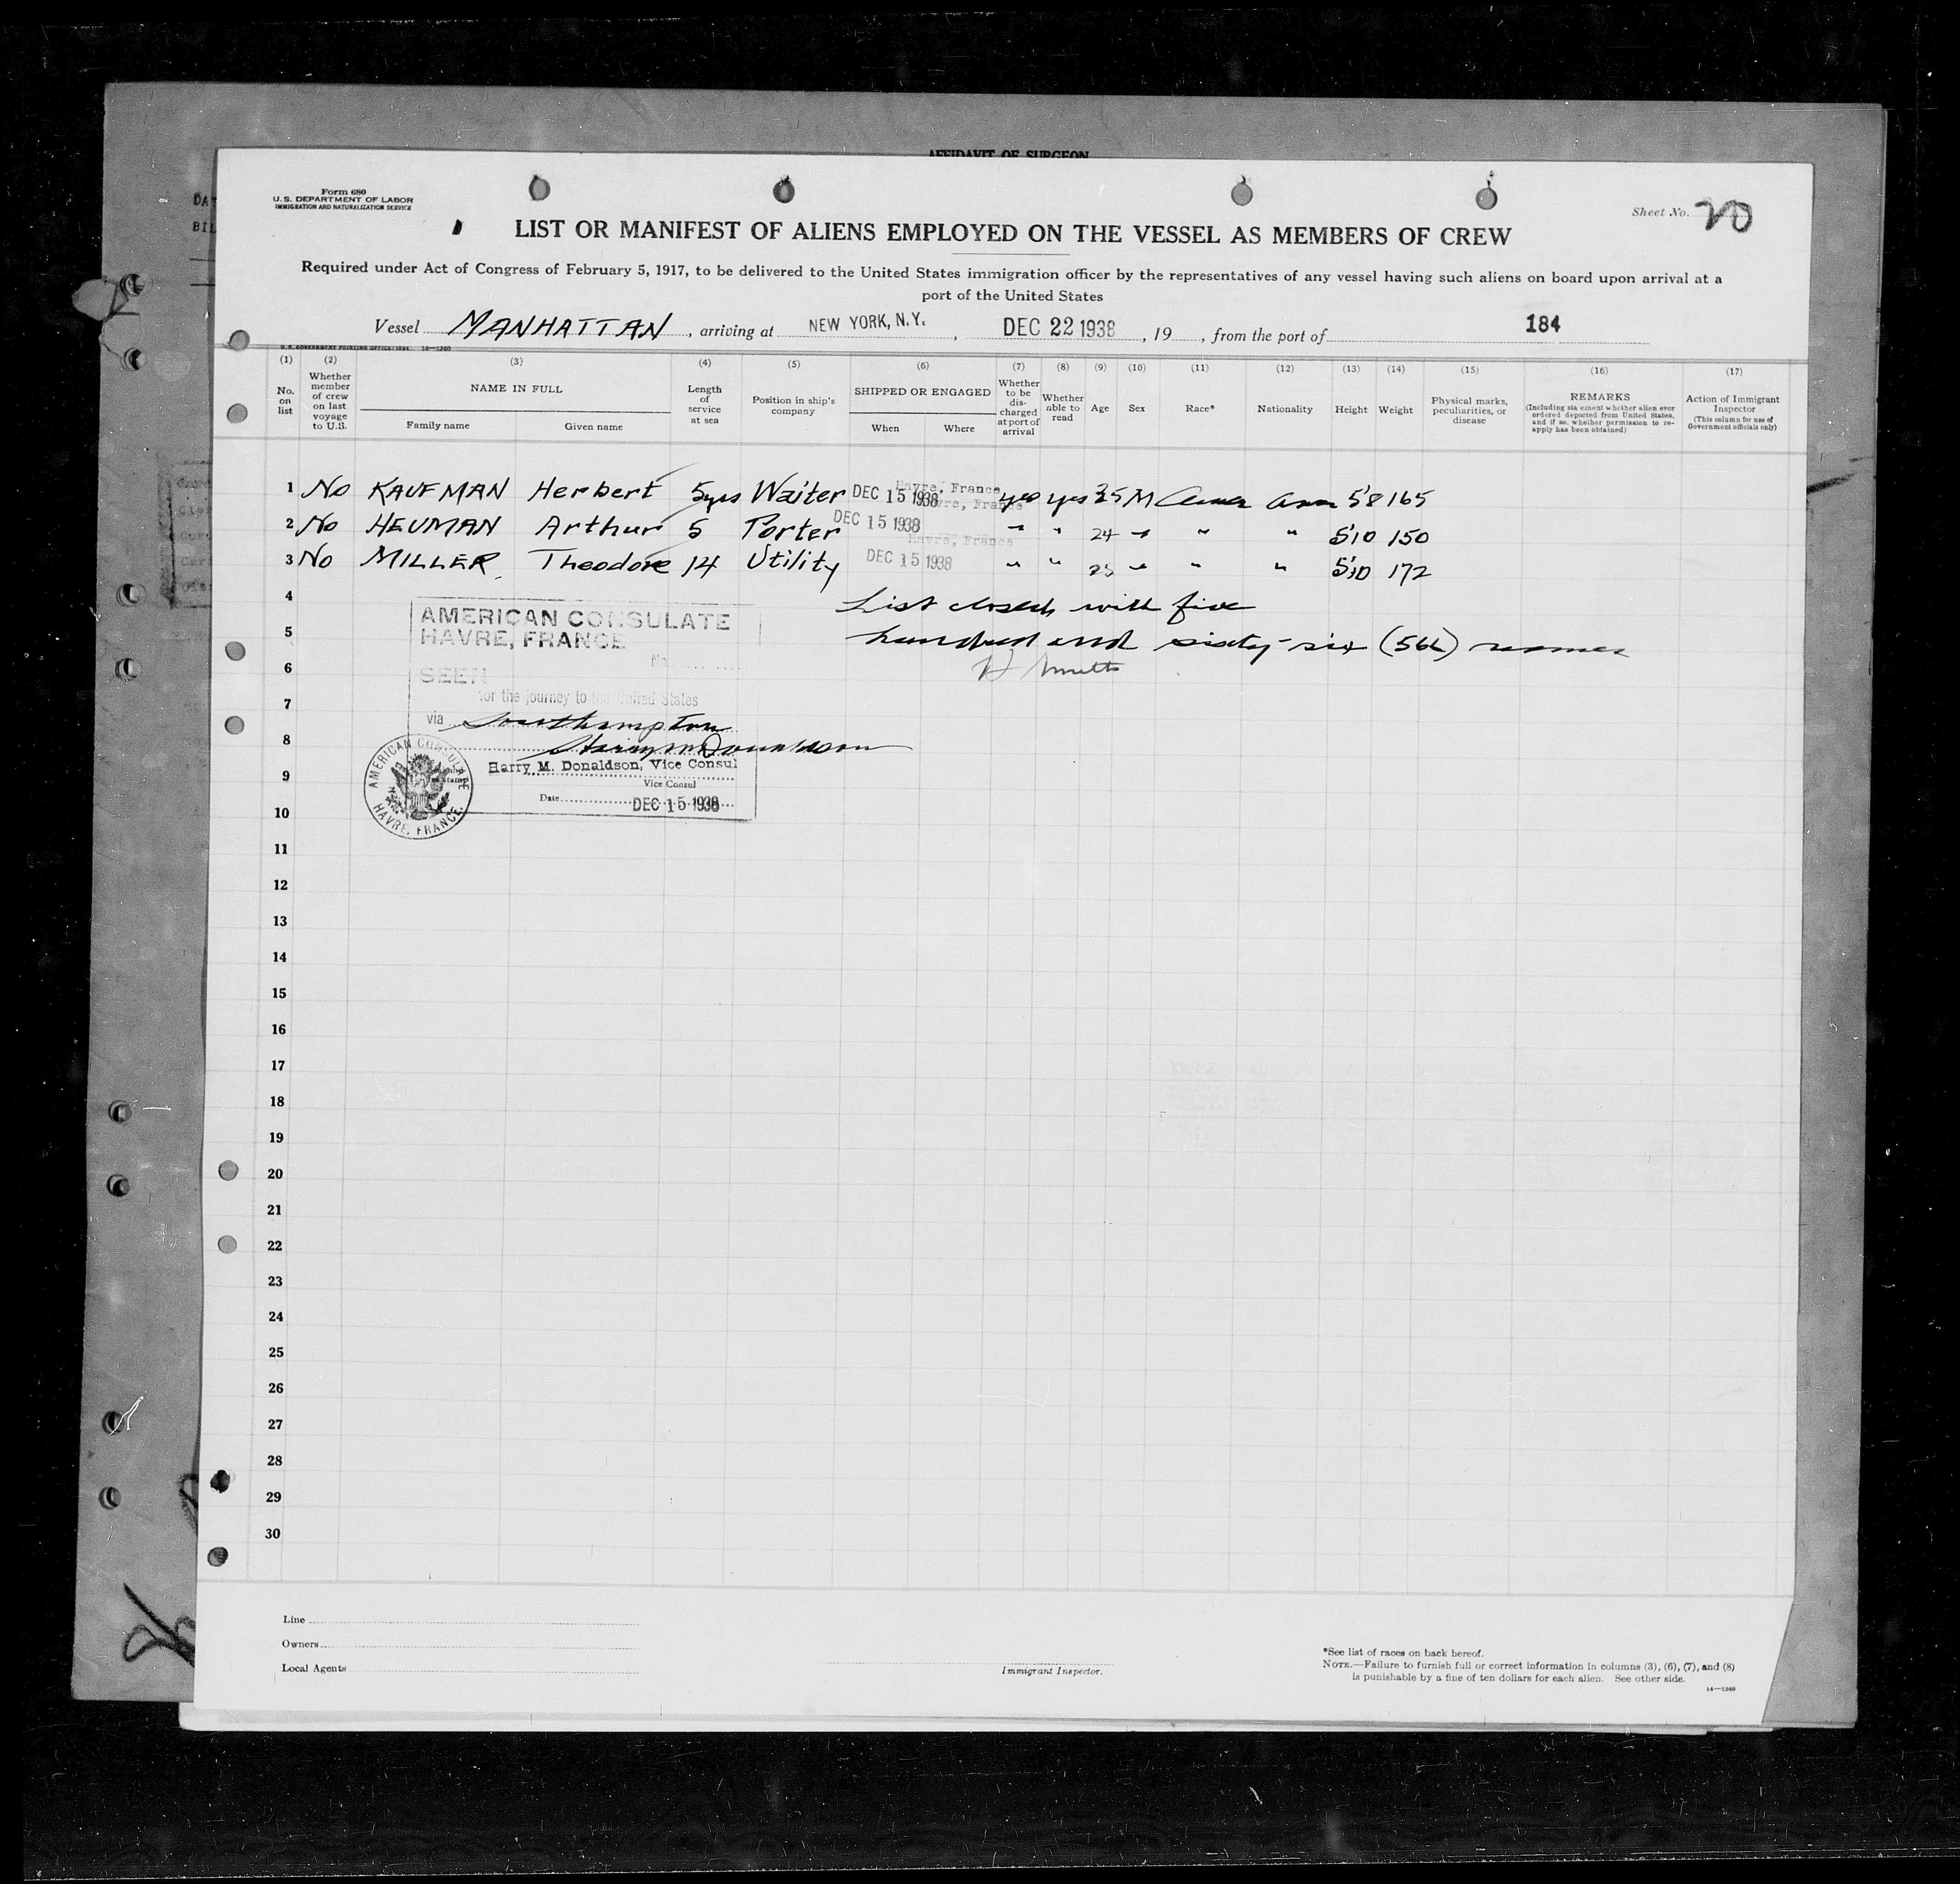 AFFIDAVIT OF SURGEON
DA
BIL
Form 680
U.S. DEPARTMENT OF LABOR
IMMIGRATION AND NATURALIZATION SERVICE
Sheet No. 20
LIST OR MANIFEST OF ALIENS EMPLOYED ON THE VESSEL AS MEMBERS OF CREW
Required under Act of Congress of February 5, 1917, to be delivered to the United States immigration officer by the representatives of any vessel having such aliens on board upon arrival at a
port of the United States
Vessel MANHATTAN, arriving at NEW YORK, N.Y., DEC 22 1938, 19 , from the port of 184
U.S. GOVERNMENT PRINTING OFFICE: 1934 14—1240
(1) (2) (3) (4) (5) (6) (7) (8) (9) (10) (11) (12) (13) (14) (15) (16) (17)
No. on list
Whether member of crew on last voyage to U.S.
NAME IN FULL
Family name Given name
Length of service at sea
Position in ship's company
SHIPPED OR ENGAGED
When Where
Whether to be discharged at port of arrival
Whether able to read
Age
Sex
Race*
Nationality
Height
Weight
Physical marks, peculiarities, or disease
REMARKS
(Including statement whether alien ever ordered deported from United States, and if so, whether permission to re-apply has been obtained)
Action of Immigrant Inspector
(This column for use of Government officials only)
1 No KAUFMAN Herbert 5yrs Waiter DEC 15 1938 Havre, France yes yes 35 M Amer Am 5'8 165
2 No HEUMAN Arthur 5 Porter DEC 15 1938 Havre, France " " 24 " " " 5'10 150
3 No MILLER Theodore 14 Utility DEC 15 1938 Havre, France " " " " " 5'10 172
4 List closed with five
5 hundred and sixty-six (566) names
6
7
8
9
10
11
12
13
14
15
16
17
18
19
20
21
22
23
24
25
26
27
28
29
30
AMERICAN CONSULATE
HAVRE, FRANCE
No.
SEEN
for the journey to the United States
via Southampton
Harry M Donaldson
Harry M. Donaldson, Vice Consul
Vice Consul
Date DEC 15 1938
AMERICAN CONSULATE
HAVRE, FRANCE.
Line
Owners
Local Agents
Immigrant Inspector.
*See list of races on back hereof.
NOTE.—Failure to furnish full or correct information in columns (3), (6), (7), and (8)
is punishable by a fine of ten dollars for each alien. See other side.
14—1240